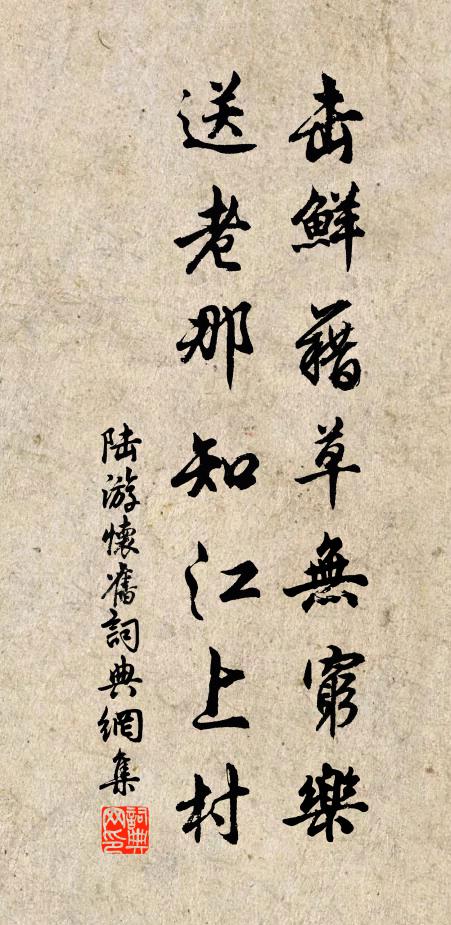 击鮮藉草無窮樂
送老那知江上村
陆游懷舊詞典網集
詞典网印